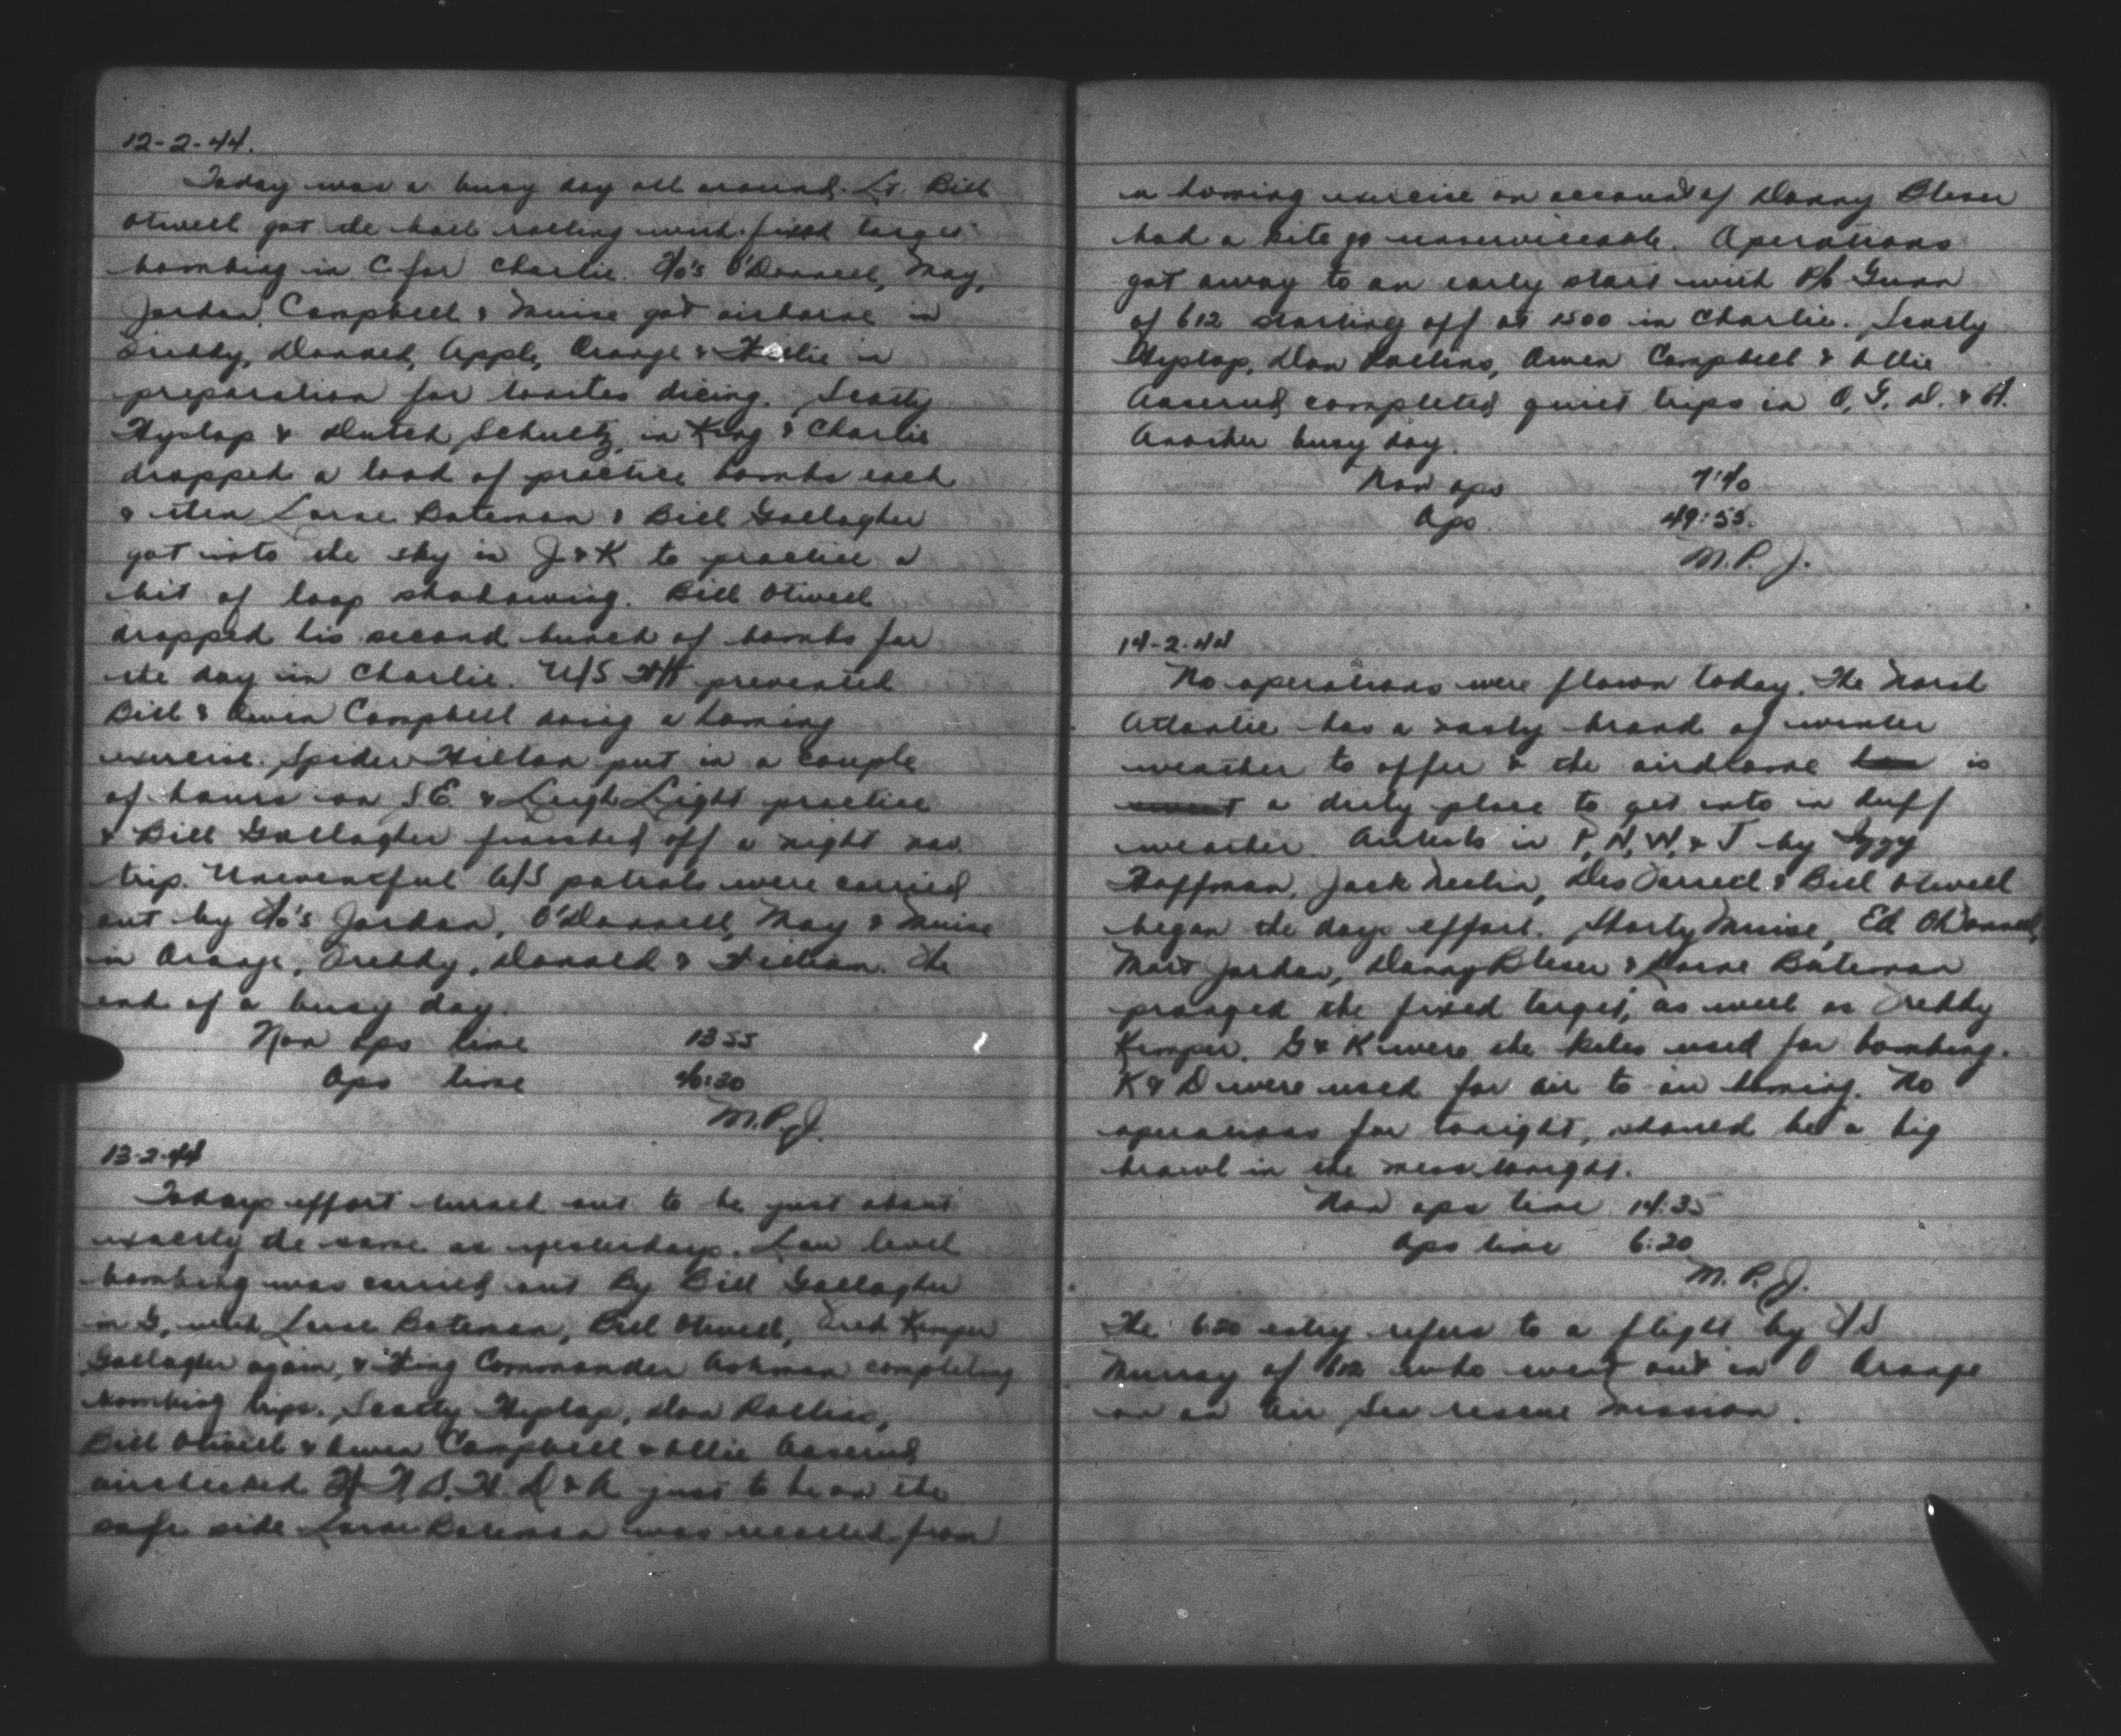 12-2-44.
Today was a busy day all around. Lt. Bill
Otwell got de ball rolling with fixed target
bombing in C for Charlie. F/o's O'Donnell, May,
Jordan, Campbell & Muise got airborne in
Freddy, Donald, Apple, Orange & in
preparation for tonites dicing. Scotty
Hyslop & Dutch Schultz, in King & Charlie
dropped a load of practice bombs each
& then Lorne Bateman & Bill Gallagher
got into the sky in J & K to practice a
bit of loop shadowing. Bill Otwell
dropped his second bunch of bombs for
the day in Charlie. U/S prevented
Bill & Owen Campbell doing a homing
exercise. Spider Hilton put in a couple
of hours on S.E. & Leigh Light practice
& Bill Gallagher finished off a night nav.
trip. Uneventful A/S patrols were carried
out by F/o's Jordan, O'Donnell, May & Muise
in Orange, Freddy, Donald & William. The
end of a busy day.
Non ops time 1355
Ops time 46:20
M.P.J.
13-2-44
Todays effort turned out to be just about
exactly de same as yesterdays. Low level
bombing was carried out By Bill Gallagher
in G, with Lorne Bateman, Bill Otwell, Fred Kemper
Gallagher again, & Wing Commander Ashman completing
bombing trips. Scotty Hyslop, Don Rollins,
Bill Otwell & Owen Campbell & Ollie Aaserud
airchecked D & A just to be on the
safe side. Lorne Bateman was recalled from
a homing exercise on account of Danny Bleser
had a kite go unserviceable. Operations
got away to an early start with P/o Gunn
of 612 starting off at 1500 in Charlie. Scotty
Hyslop, Don Rollins, Owen Campbell & Ollie
Aaserud completed quiet trips in O, G, D. & A.
Another busy day.
Non ops 7:40
Ops. 49:55.
M.P.J.
14-2-44
No operations were flown today. The North
Atlantic has a nasty brand of winter
weather to offer & the airdrome is
a dirty place to get into in duff
weather. Airtests in P, N, W, & J by Iggy
Hoffman, Jack Neelin, Des Farrell & Bill Otwell
began the days effort. Shorty Muise, Ed O'Donnell,
Mort Jordan, Danny Bleser & Lorne Bateman
pranged the fixed target, as well as Freddy
Kemper. G & K were the kites used for bombing.
K & D were used for air to air homing. No
operations for tonight, should be a big
brawl in the mess tonight.
Non ops time 14:35
Ops time 6:20
M.P.J.
The 6:20 entry refers to a flight by F/S
Murray of 612 who went out in O Orange
on an Air Sea rescue mission.